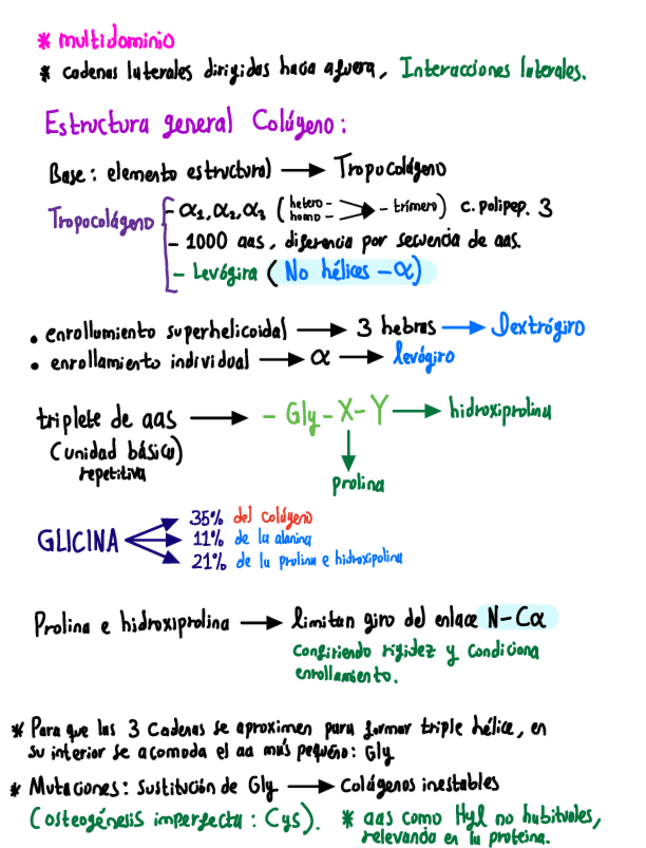 * multidominio
* cadenas laterales dirigidas hacia afuera, Interacciones laterales.
Estructura general Colágeno:
Base: elemento estructural → Tropocolágeno
Tropocolágeno
- α1, α2, α3 (hetero- homo- → - trímero) c. polipep. 3
- 1000 aas, diferencia por secuencia de aas.
- Levógira (No hélices - α)
• enrollamiento superhelicoidal → 3 hebras → Dextrógiro
• enrollamiento individual → α → levógiro
triplete de aas → - Gly - X - Y → hidroxiprolina
(unidad básica)
repetitiva
prolina
GLICINA
35% del colágeno
11% de la alanina
21% de la prolina e hidroxipolina
Prolina e hidroxiprolina → limitan giro del enlace N-Cα
confiriendo rigidez y condiciona
enrollamiento.
* Para que las 3 cadenas se aproximen para formar triple hélice, en
su interior se acomoda el aa más pequeño: Gly
* Mutaciones: sustitución de Gly → Colágenos inestables
(osteogénesis imperfecta: Cys).
* aas como Hyl no habituales,
relevando en la proteina.